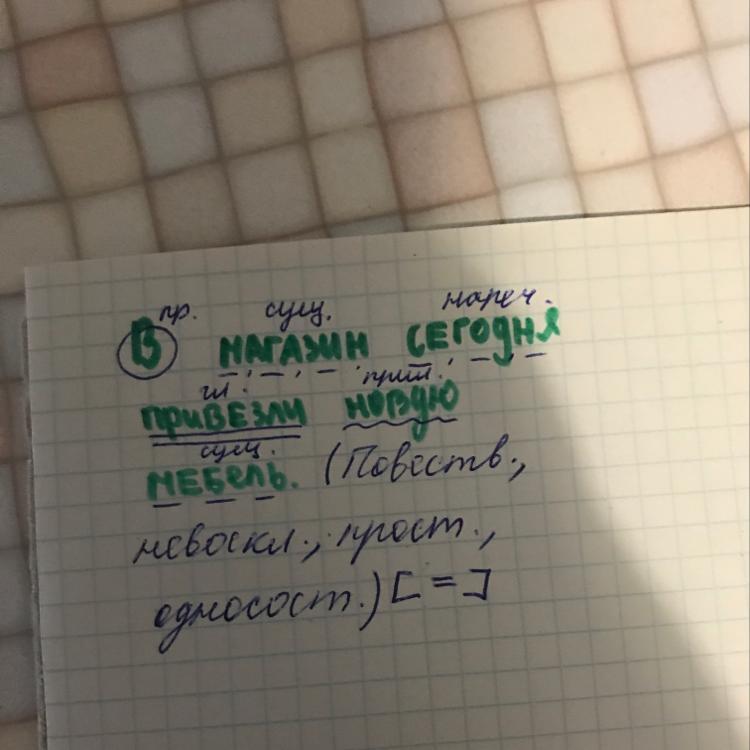 пр. сущ. нареч.
В МАГАЗИН СЕГОДНЯ
гл. прил.
ПРИВЕЗЛИ НОВУЮ
сущ.
МЕБЕЛЬ. (Повеств.,
невоскл., прост.,
односост.) [=]